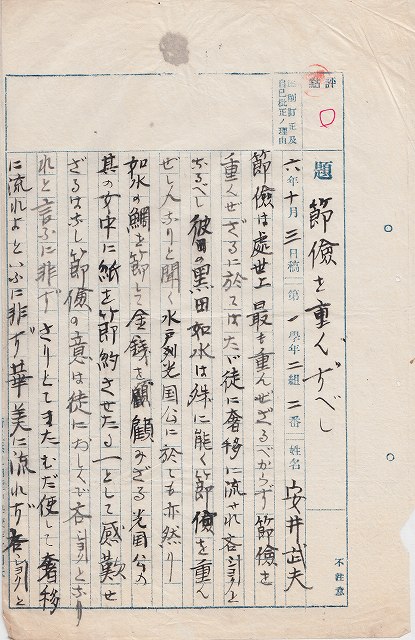 評點
體制訂正及
自己批正ノ理由
題 節儉を重んずべし
六年十月三日稿 第一學年二組二番 姓名 安井武夫
不注意
節儉は處世上最も重んぜざるべからず節儉を
重くせざるに於てはたゞ徒に奢移に流せれ吝
なるべし 彼の黒田如水は殊に能く節儉を重ん
ぜし人なりと聞く水戸烈光国公に於ても亦然り
如水の鯛を節して金銭を顧みざる光国公の
其の女中に紙を節約させたる一として感歎せ
ざるはなし節儉の意は徒におしんで吝となり
れと言ふに非ず さりとてまたむだ使して奢移
に流れよといふに非ず華美に流れず吝と